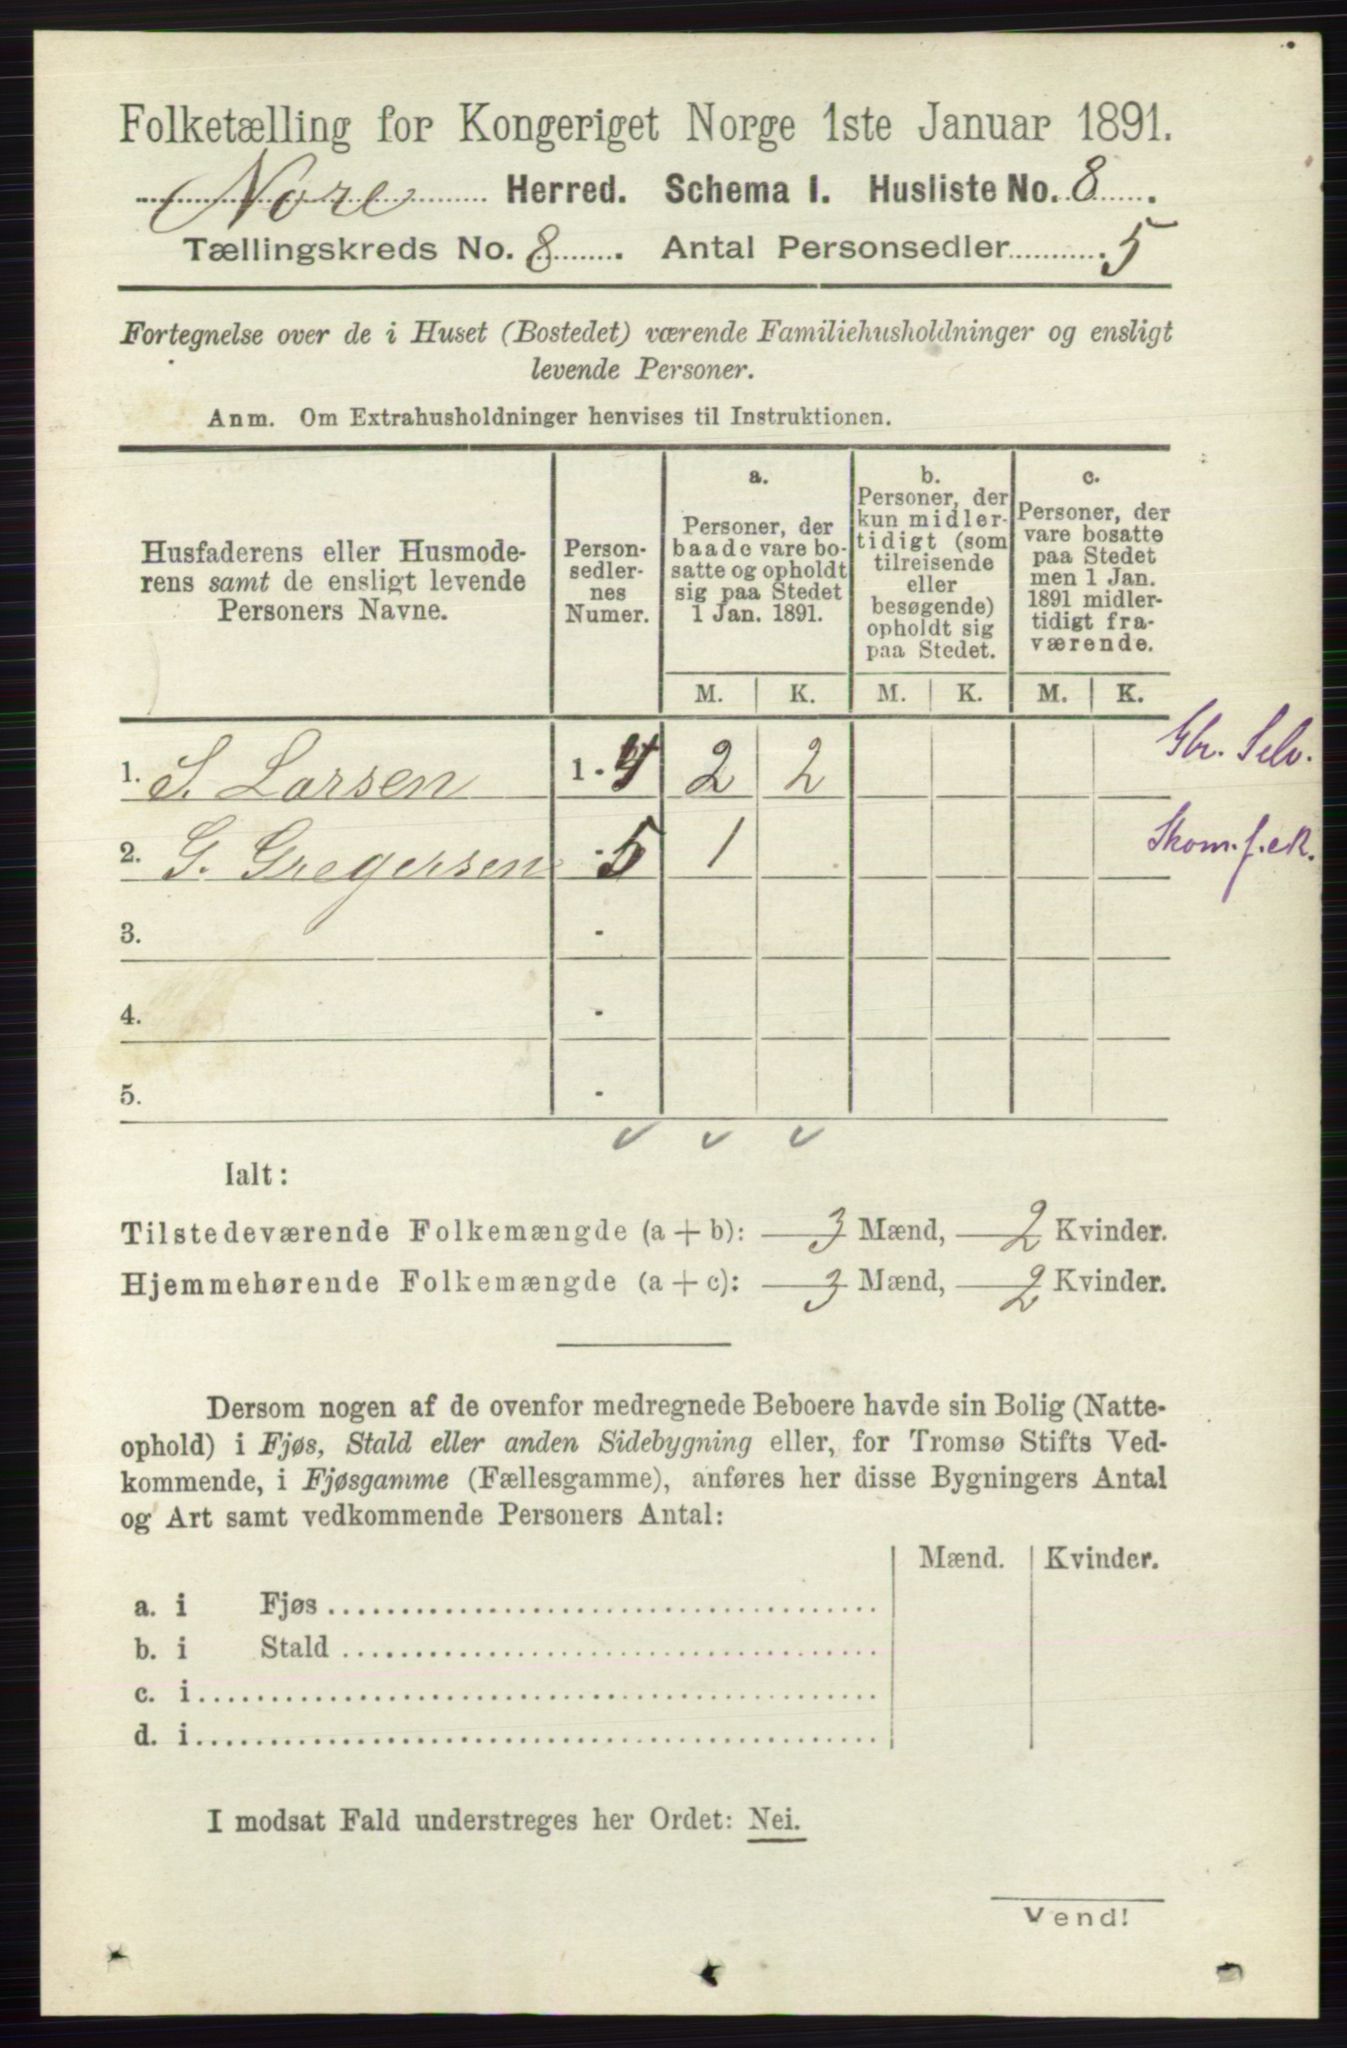 Folketælling for Kongeriget Norge 1ste Januar 1891.
Nore Herred. Schema I. Husliste No. 8.
Tællingskreds No. 8. Antal Personsedler 5
Fortegnelse over de i Huset (Bostedet) værende Familiehusholdninger og ensligt
levende Personer.
Anm. Om Extrahusholdninger henvises til Instruktionen.
Husfaderens eller Husmode-
rens samt de ensligt levende
Personers Navne.
Person-
sedler-
nes
Numer.
a.
Personer, der
baade vare bo-
satte og opholdt
sig paa Stedet
1 Jan. 1891.
b.
Personer, der
kun midler-
tidigt (som
tilreisende
eller
besøgende)
opholdt sig
paa Stedet.
c.
Personer, der
vare bosatte
paa Stedet
men 1 Jan.
1891 midler-
tidigt fra-
værende.
M. K. M. K. M. K.
1. S. Larsen 1 - 4 2 2 Gbr. Selv.
2. G. Gregersen - 5 1 Skom. f. e. R.
3. -
4. -
5. -
Ialt:
Tilstedeværende Folkemængde (a + b): 3 Mænd, 2 Kvinder.
Hjemmehørende Folkemængde (a + c): 3 Mænd, 2 Kvinder.
Dersom nogen af de ovenfor medregnede Beboere havde sin Bolig (Natte-
ophold) i Fjøs, Stald eller anden Sidebygning eller, for Tromsø Stifts Ved-
kommende, i Fjøsgamme (Fællesgamme), anføres her disse Bygningers Antal
og Art samt vedkommende Personers Antal:
Mænd. Kvinder.
a. i Fjøs
b. i Stald
c. i
d. i
I modsat Fald understreges her Ordet: Nei.
Vend!